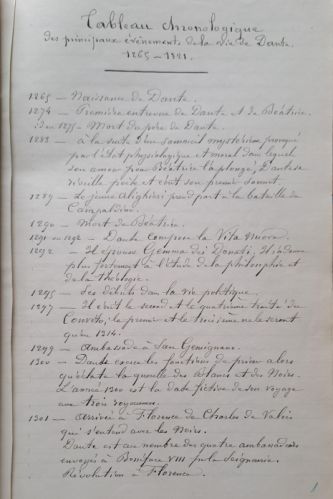 Tableau chronologique
des principaux événements de la vie de Dante.
1265 – 1321.
1265 — Naissance de Dante.
1274 — Première entrevue de Dante et de Béatrice.
1275 — Mort du père de Dante.
1283 — à la suite d'un sommeil mystérieux provoqué
par l'état physiologique et moral dans lequel
son amour pour Béatrice l'a plongé, Dante se
réveille poète et écrit son premier sonnet.
1289 — Le jeune Alighieri prend part à la bataille de
Campaldino.
1290 — Mort de Béatrice.
1291 ou 1292 — Dante compose la Vita Nuova.
1292 — Il épouse Gemma dei Donati, Il s'adonne
plus fortement à l'étude de la philosophie et
de la théologie.
1295 — Ses débuts dans la vie politique.
1297 — Il écrit le second et le quatrième traité du
Convito; le premier et le troisième ne le seront
qu'en 1314.
1299 — Ambassade à San Gemignano.
1300 — Dante exerce les fonctions de prieur alors
qu'éclate la querelle des Blancs et des Noirs.
L'année 1300 est la date fictive de son voyage
aux trois royaumes.
1301 — Arrivée à Florence de Charles de Valois
qui s'entend avec les Noirs.
Dante est au nombre des quatre ambassadeurs
envoyés à Boniface VIII par la Seigneurie.
Révolution à Florence.
1